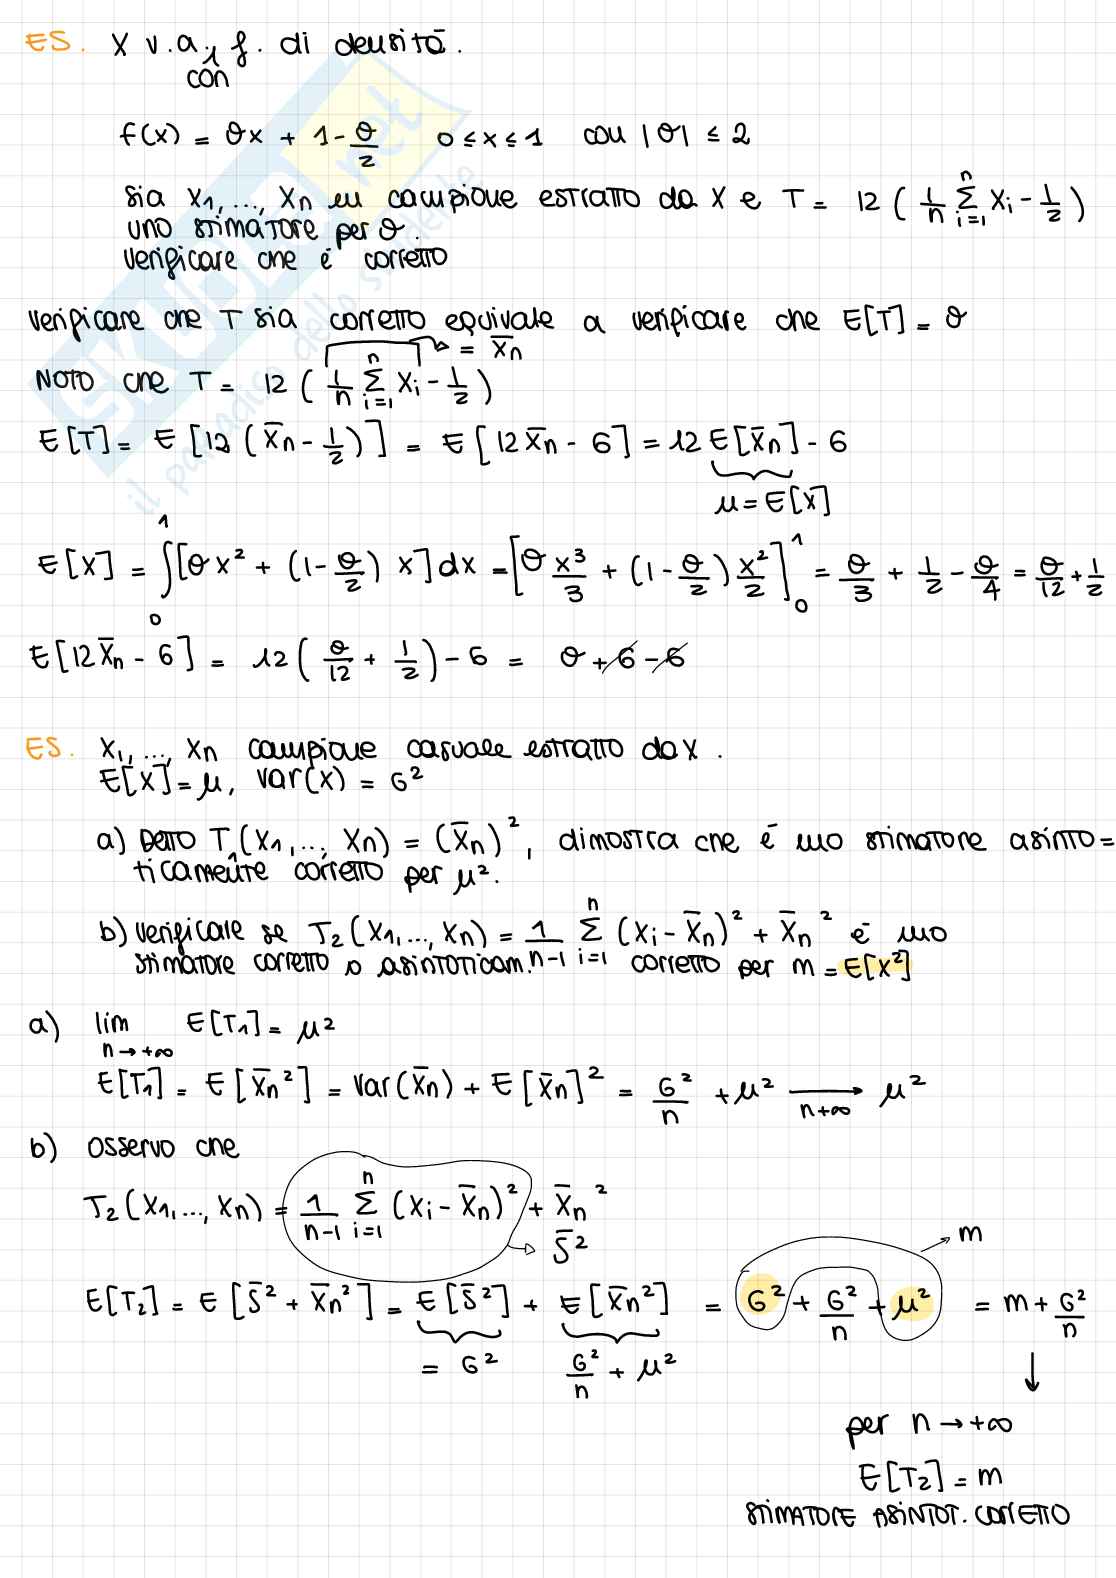 ES. X v.a. f. di densità.
con
f(x) = θx + 1 - θ/2 0 ≤ x ≤ 1 con |θ| ≤ 2
sia X1, ..., Xn un campione estratto da X e T = 12 ( 1/n Σ_{i=1}^{n} Xi - 1/2 )
uno stimatore per θ.
verificare che è corretto
verificare che T sia corretto equivale a verificare che E[T] = θ
= X̄n
NOTO che T = 12 ( 1/n Σ_{i=1}^{n} Xi - 1/2 )
E[T] = E [12 ( X̄n - 1/2 )] = E [12 X̄n - 6] = 12 E[X̄n] - 6
μ = E[X]
E[X] = ∫_0^1 [θx² + (1 - θ/2) x] dx = [θ x³/3 + (1 - θ/2) x²/2]_0^1 = θ/3 + 1/2 - θ/4 = θ/12 + 1/2
E[12 X̄n - 6] = 12 ( θ/12 + 1/2 ) - 6 = θ + 6 - 6
ES. X1, ..., Xn campione casuale estratto da X.
E[X] = μ, var(X) = σ²
a) DETTO T1(X1, ..., Xn) = (X̄n)², dimostra che è uno stimatore asinto=
ticamente corretto per μ².
b) verificare se T2(X1, ..., Xn) = 1/(n-1) Σ_{i=1}^{n} (Xi - X̄n)² + X̄n² è uno
stimatore corretto o asintoticam. corretto per m = E[X²]
a) lim_{n→+∞} E[T1] = μ²
E[T1] = E [X̄n²] = var(X̄n) + E [X̄n]² = σ²/n + μ² ⟶ μ²
n+∞
b) osservo che
T2(X1, ..., Xn) = 1/(n-1) Σ_{i=1}^{n} (Xi - X̄n)² + X̄n²
S̄²
m
E[T2] = E [S̄² + X̄n²] = E [S̄²] + E [X̄n²] = σ² + σ²/n + μ² = m + σ²/n
= σ² σ²/n + μ²
↓
per n → +∞
E[T2] = m
STIMATORE ASINTOT. CORRETTO
SKUOLA.net
il paradiso dello studente